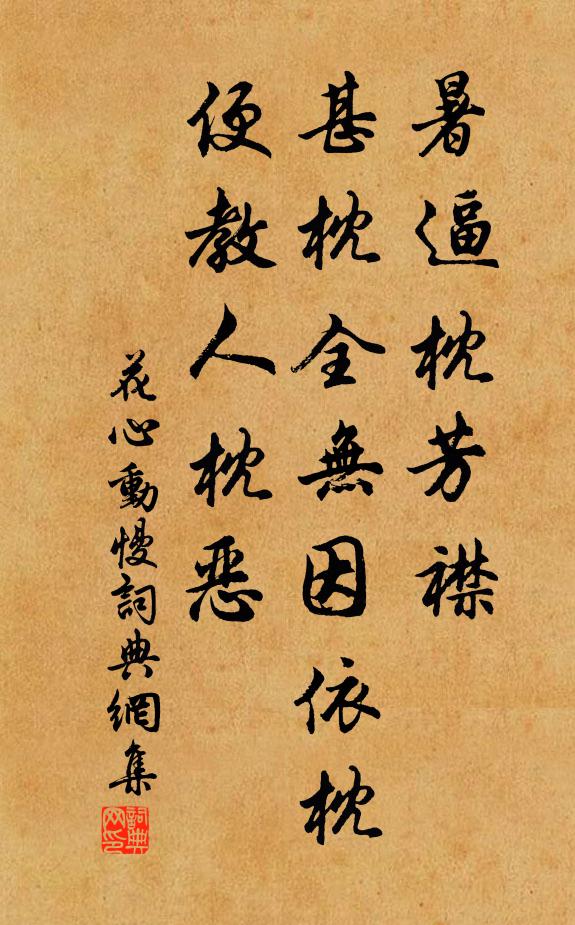 暑逼枕芳襟
甚枕全無因依枕
便教人枕惡
花心動慢詞典網集
詞典网印